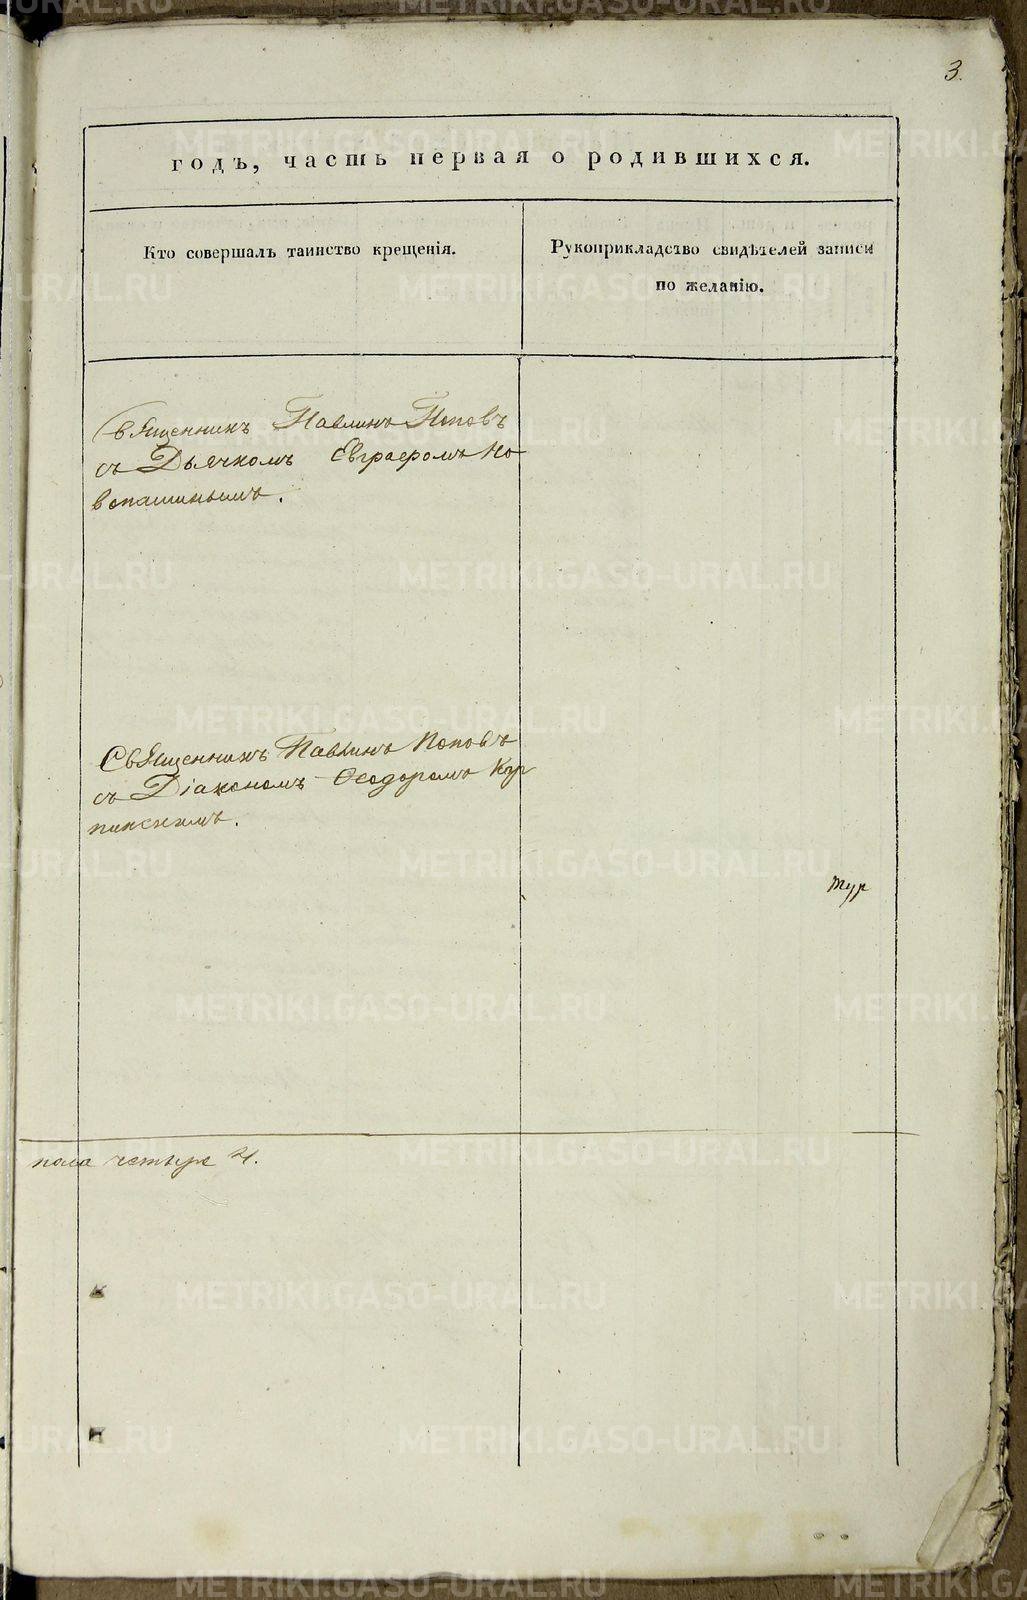 3.
годъ, часть первая о родившихся.
Кто совершалъ таинство крещенія.
Рукоприкладство свидѣтелей записи
по желанію.
Священникъ Павлинъ Поповъ
съ Дьячкомъ Евграфомъ Но
вопашинымъ.
Священникъ Павлинъ Поповъ
съ Діакономъ Ѳеодоромъ Кур
пинскимъ.
тур
пола четыре 4.
METRIKI.GASO-URAL.RU